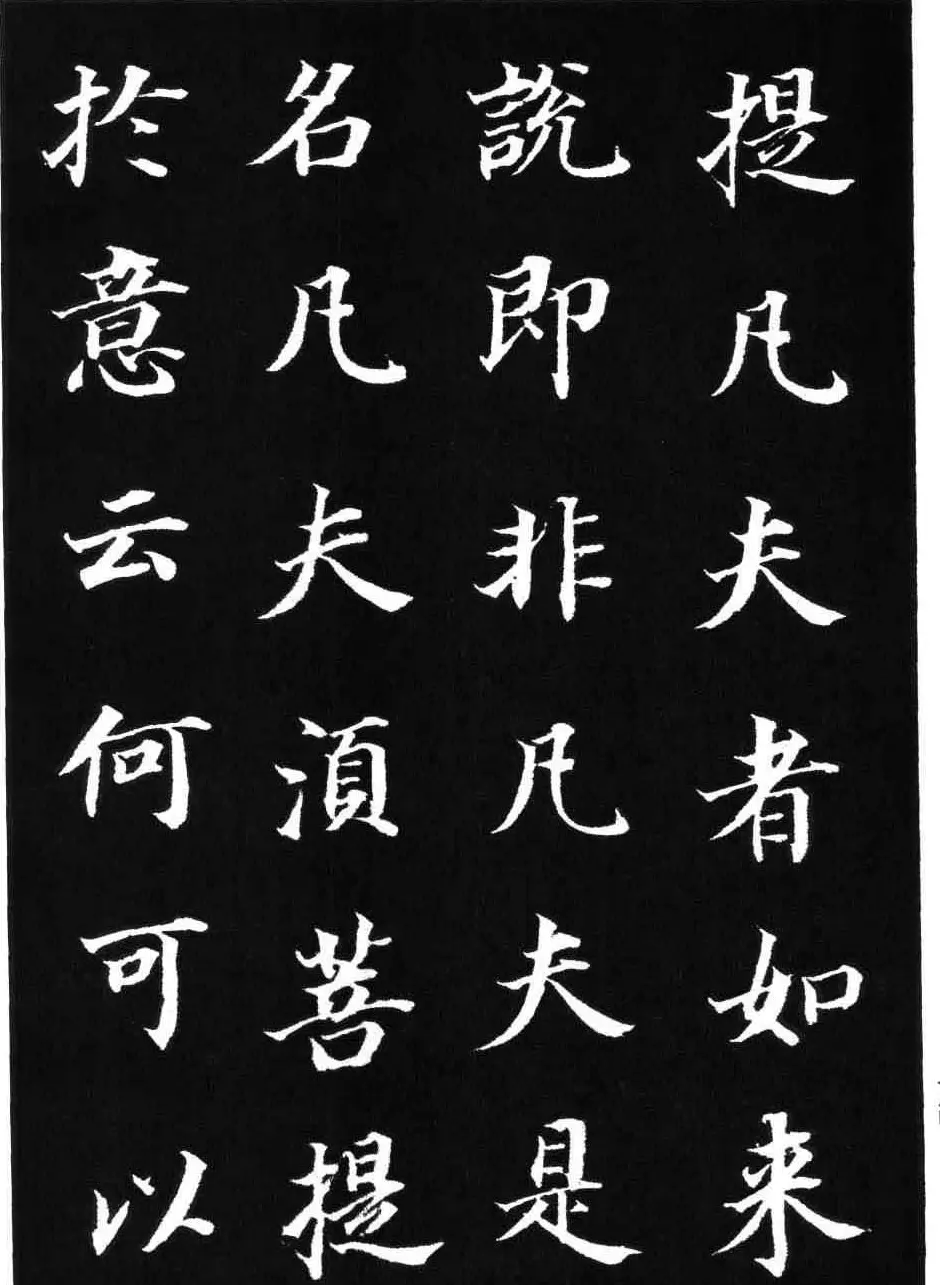 提凡夫者如来
說即非凡夫是
名凡夫湏菩提
於意云何可以